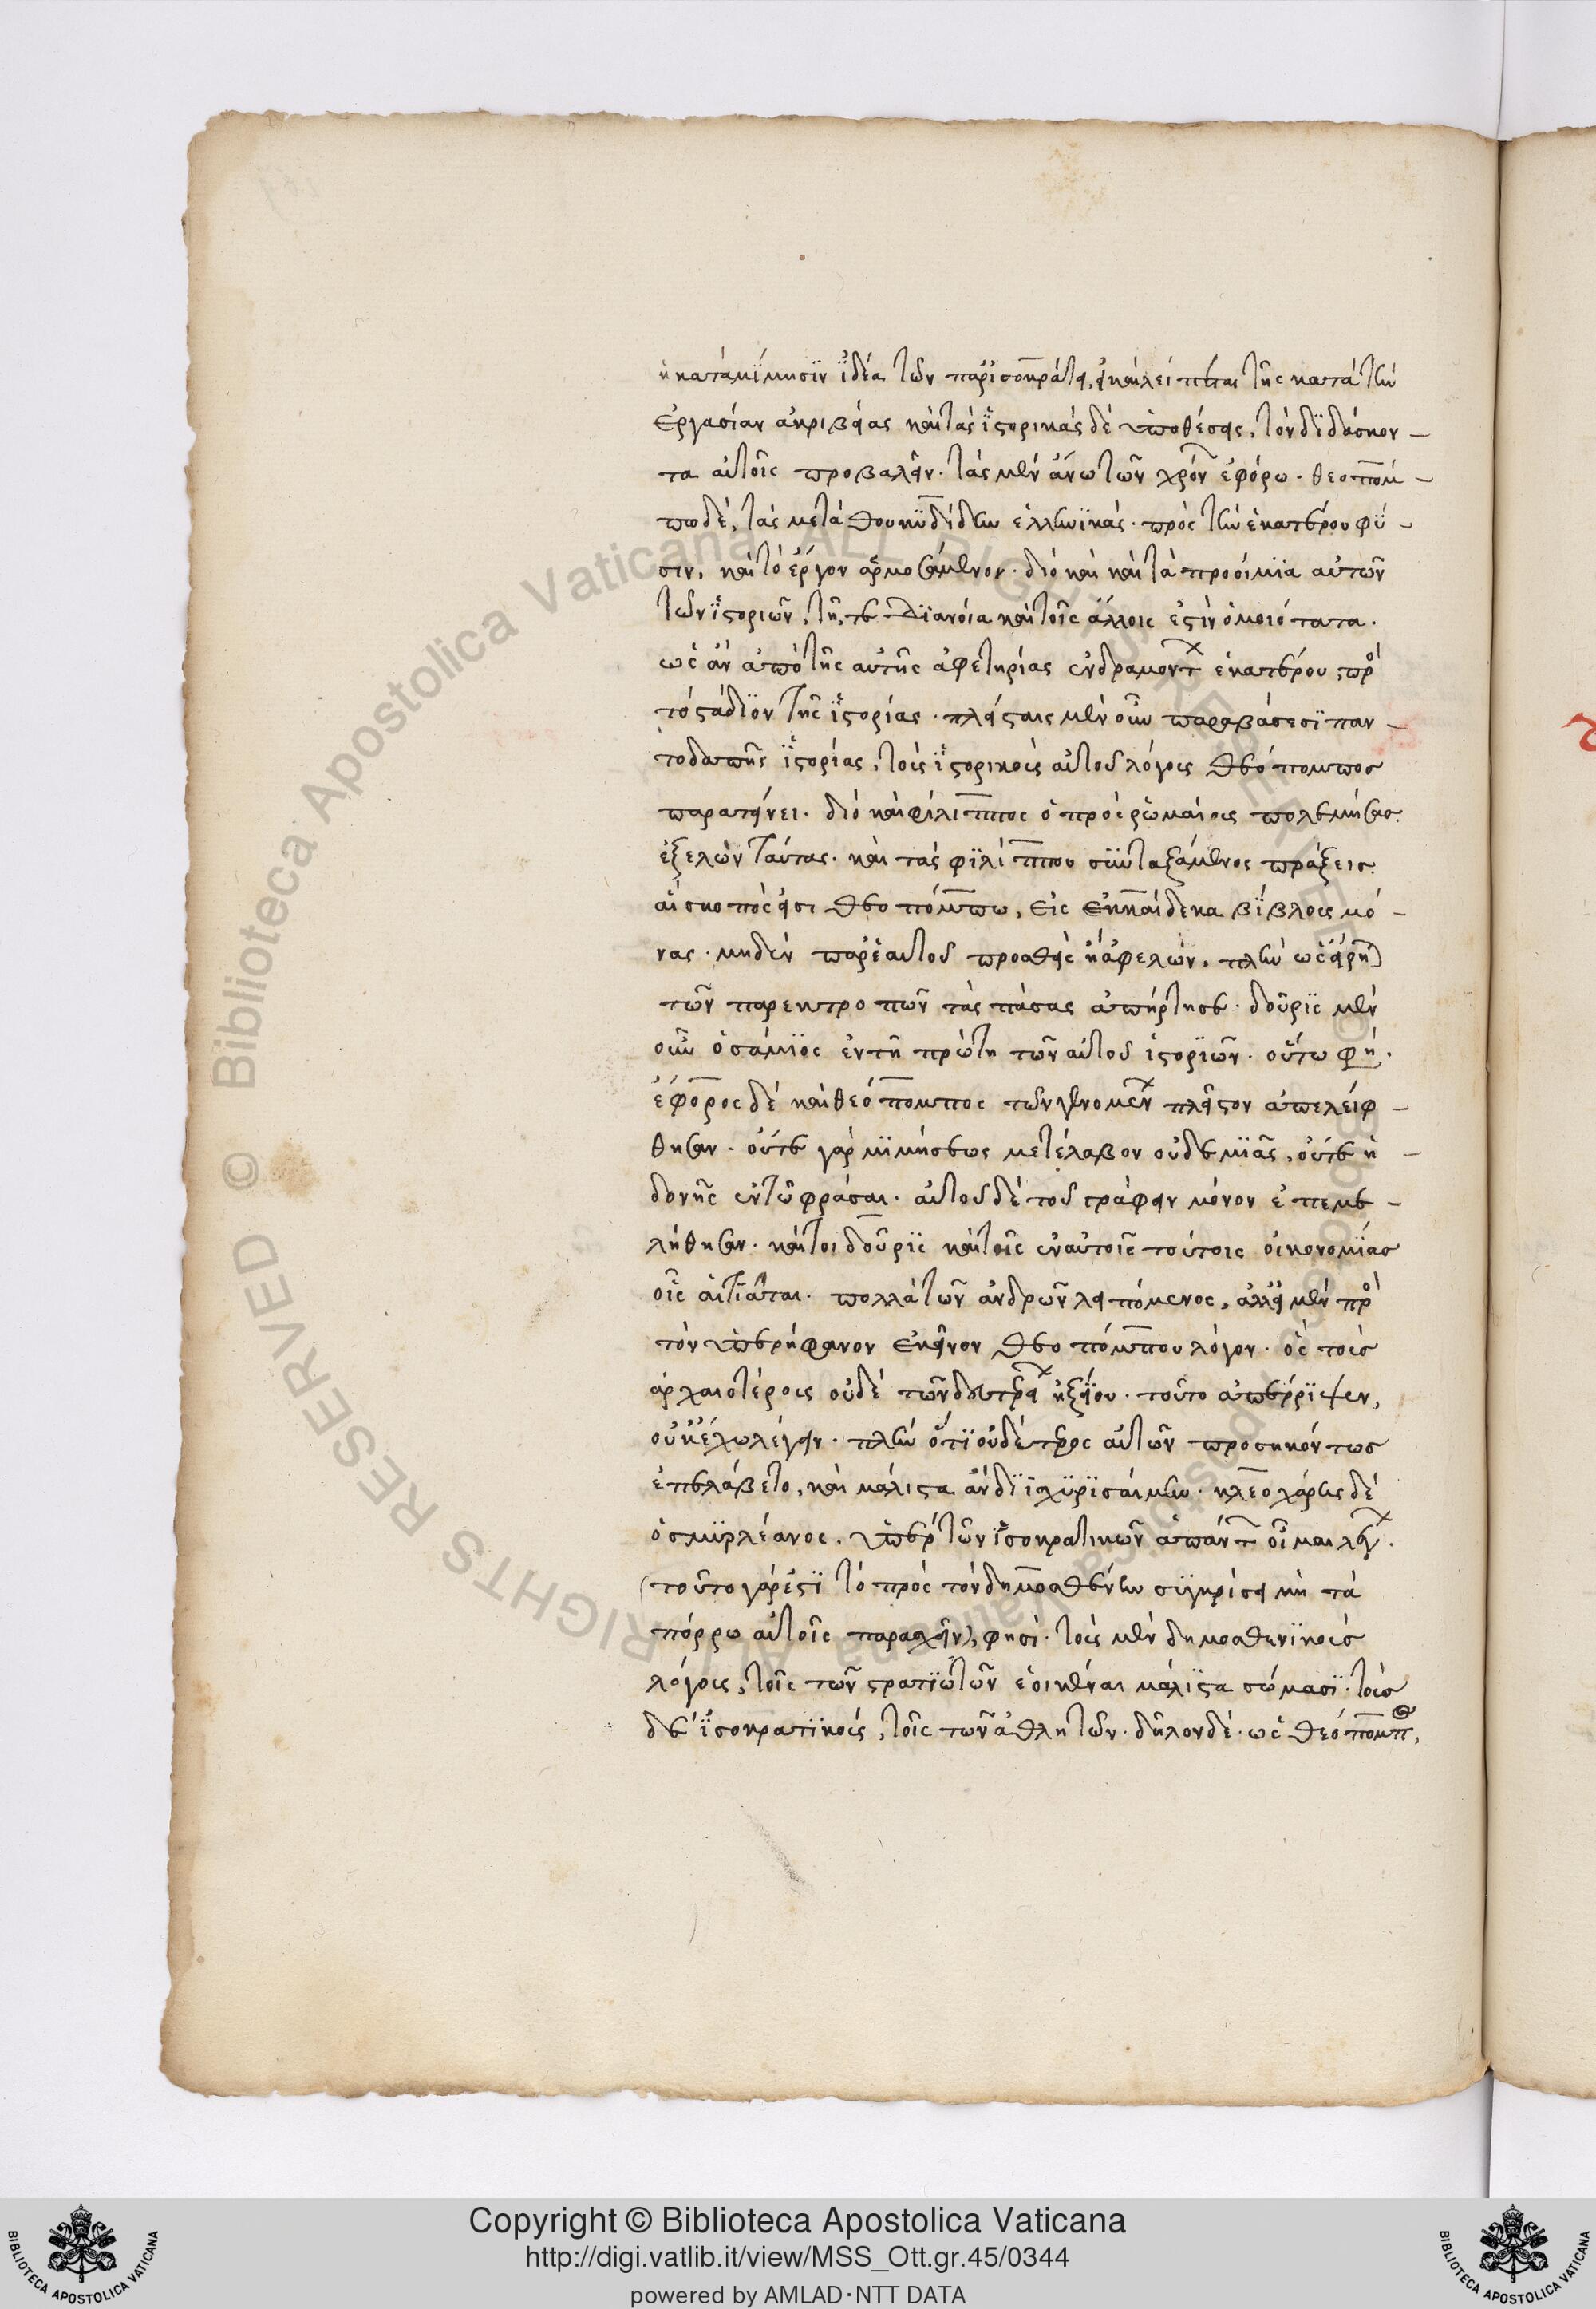 ἡ κατὰ μίμησιν ἰδέα τῶν παρ' ἰσοκράτει, ἐκλείπεται τῆς κατὰ τὴν
ἐργασίαν ἀκριβείας καὶ τὰς ἱστορικὰς δὲ ὑποθέσεις, τὸν διδάσκον-
τα αὐτοῖς προβαλεῖν. τὰς μὲν ἄνω τῶν χρόνων ἐφόρῳ. θεοπόμ-
πῳ δὲ, τὰς μετὰ θουκυδίδην ἑλληνικάς. πρὸς τὴν ἑκατέρου φύ-
σιν, καὶ τὸ ἔργον ἁρμοσάμενον. διὸ καὶ καὶ τὰ προοίμια αὐτῶν
τῶν ἱστοριῶν, τῇ τε διανοίᾳ καὶ τοῖς ἄλλοις ἐστὶν ὁμοιότατα.
ὡς ἂν ἀπὸ τῆς αὐτῆς ἀφετηρίας ἐνδραμόντων ἑκατέρου, πρὸς
τὸ στάδιον τῆς ἱστορίας. πλείσταις μὲν οὖν παραβάσεσι παν-
τοδαπῆς ἱστορίας, τοὺς ἱστορικοὺς αὐτοῦ λόγους θεόπομπος
παρατείνει. διὸ καὶ φίλιππος ὁ πρὸς ῥωμαίους πολεμήσας.
ἐξελὼν ταύτας. καὶ τὰς φιλίππου συνταξάμενος πράξεις.
αἳ σκοπός εἰσι θεοπόμπῳ, εἰς ἑκκαίδεκα βίβλους μό-
νας. μηδὲν παρ' ἑαυτοῦ προσθεὶς ἢ ἀφελὼν. πλὴν ὡς εἴρηται
τῶν παρεκτροπῶν τὰς πάσας ἀπήρτησε. δοῦρις μὲν
οὖν ὁ σάμιος ἐν τῇ πρώτῃ τῶν αὐτοῦ ἱστοριῶν. οὕτω φη.
ἔφορος δὲ καὶ θεόπομπος τῶν γενομένων πλεῖστον ἀπελείφ-
θησαν. οὔτε γὰρ μιμήσεως μετέλαβον οὐδεμιᾶς, οὔτε ἡ-
δονῆς ἐν τῷ φράσαι. αὐτοῦ δὲ τοῦ γράφειν μόνον ἐπεμε-
λήθησαν. καίτοι δοῦρις καὶ τοῖς ἐν αὐτοῖς τούτοις οἰκονομίας
οἷς αἰτιᾶται. πολλὰ τῶν ἀνδρῶν λειπόμενος, ἀλλ' εἰ μὲν πρὸς
τὸν ὑπερήφανον ἐκεῖνον θεοπόμπου λόγον. ὃς τοὺς
ἀρχαιοτέρους οὐδὲ τῶν δευτερείων ἠξίου. τοῦτο ἀπέρριψεν,
οὐκ ἔχω λέγειν. πλὴν ὅτι οὐδετέρος αὐτῶν προσηκόντως
ἐπελάβετο, καὶ μάλιστα ἂν διϊσχυρισαίμην. κλεοχάρης δὲ
ὁ σμυρλέανος. ὑπὲρ τῶν ἰσοκρατικῶν ἁπάντων οἶμαι λέγων.
(τοῦτο γάρ ἐστι τὸ πρὸς τὸν δημοσθένην συγκρίσει μὴ τὰ
πόρρω αὐτοῖς παρασχεῖν), φησὶ. τοὺς μὲν δημοσθενικοὺς
λόγους, τοῖς τῶν στρατιωτῶν ἐοικέναι μάλιστα σώμασι. τοὺς
δὲ ἰσοκρατικοὺς, τοῖς τῶν ἀθλητῶν. δῆλον δὲ. ὡς θεόπομπος,
Copyright © Biblioteca Apostolica Vaticana
http://digi.vatlib.it/view/MSS_Ott.gr.45/0344
powered by AMLAD·NTT DATA